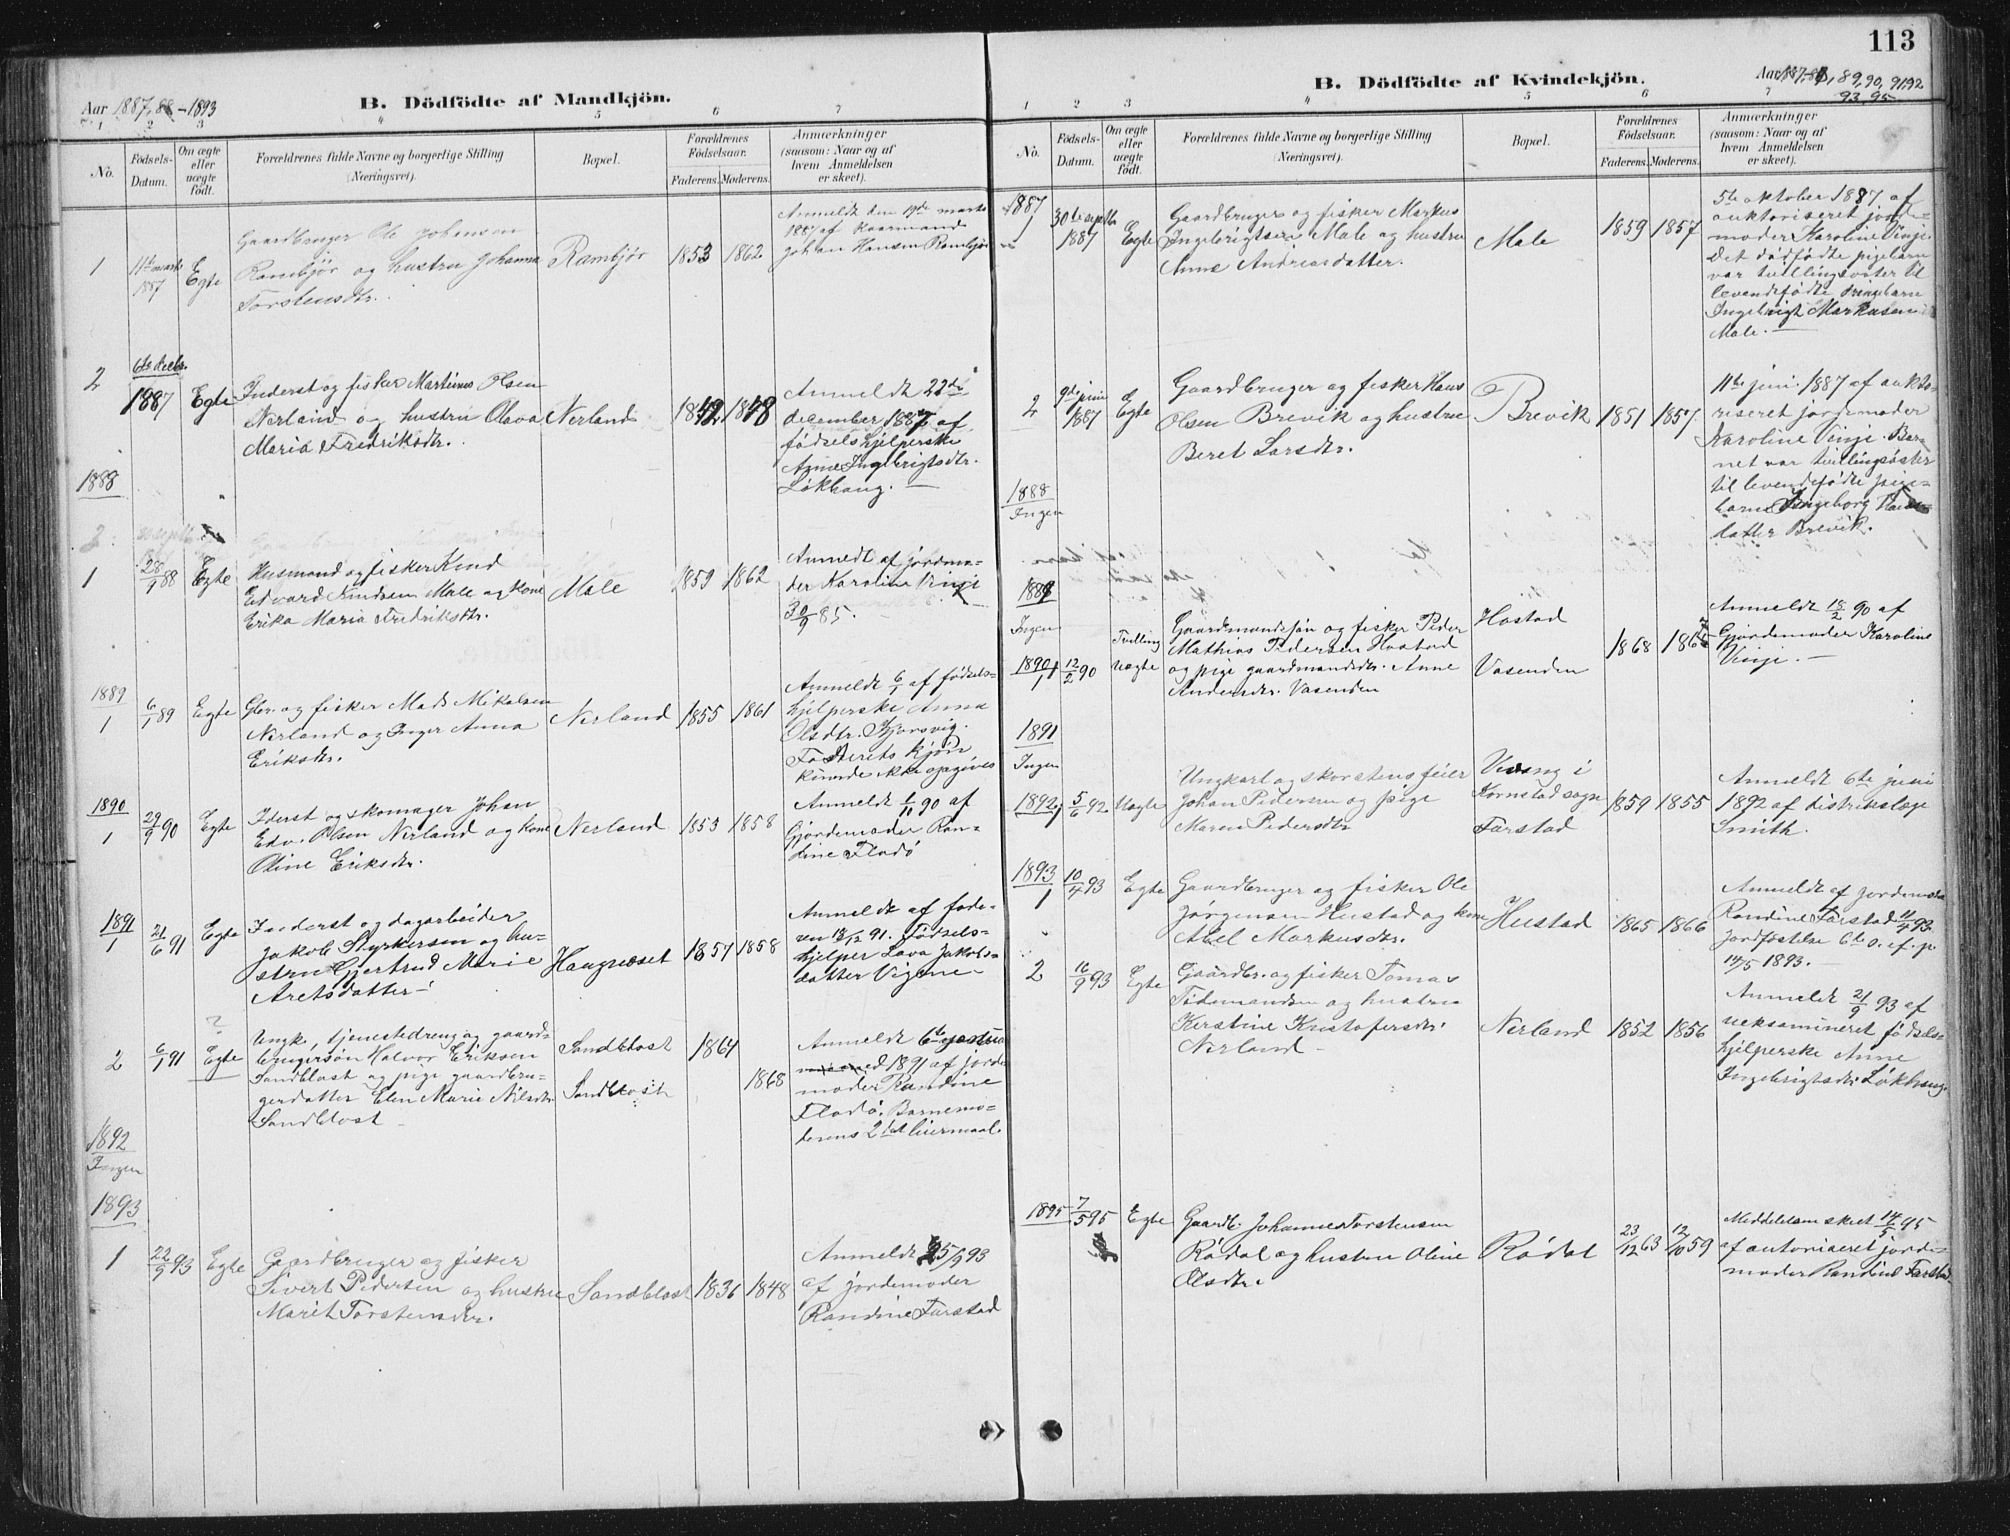 113
Aar 1887, 88 - 1893
B. Dödfödte af Mandkjön.
1 2 3 4 5 6 7
No.
Födsels-
Datum.
Om ægte
eller
uægte
födt.
Forældrenes fulde Navne og borgerlige Stilling
(Næringsvei).
Bopæl.
Forældrenes
Födselsaar.
Faderens. Moderens.
Anmærkninger
(saasom: Naar og af
hvem Anmeldelsen
er skeet).
1
11te marts
1887
Egte
Gaardbruger Ole Johansen
Rambjör og hustru Johanna
Torstensdtr.
Rambjör
1853 1862
Anmeldt den 19de marts
1887 af Kaarmand
Johan Hansen Rambjör
2
6te decbr.
1887
Egte
Inderst og fisker Martinus Olsen
Nerland og hustru Olava
Maria Fredriksdtr.
Nerland
1842 1848
Anmeldt 22de
december 1887 af
födselshjelperske
Anne Ingebrigtsdtr.
Lökhaug. —
1888
1
28/1 88
Egte
Husmand og fisker Knud
Edvard Knudsen Male og kone
Erika Maria Fredriksdtr.
Male
1859 1862
Anmedt af jordmo-
der Karoline Vinje
30/9 85.
1889
1
6/1 89
Egte
Gbr. og fisker Mads Mikalsen
Nerland og Inger Anna
Eriksdtr.
Nerland
1855 1861
Anmeldt 6/1 af födsels-
hjelperske Anna
Olsdtr. Bjorsvig
Fosterets kjön
kunde ikke opgives
1890
1
29/9 90
Egte
Iderst og skomager Johan
Edv. Olsen Nerland og kone
Oline Eriksdtr.
Nerland
1853 1858
Anmeldt 1/11 90 af
Gjordemoder Ran-
dine Flodö
1891
1
21/6 91
Egte
Inderst og dagarbeider
Jakob Styrkersen og hu-
stru Gjertrud Marie
Aretsdatter -
Haugneset
1857 1858
Anmeldt af fade-
ren 18/12 91. Födsels-
hjelper Lava Jakobs-
datter Vigene -
2
6/1 91
?
Egte
Ungk., tjenestedreng og gaard-
brugersön Halvor Eriksen
Sandblost og pige gaardbru-
gerdatter Elen Marie Nilsdtr
Sandblost -
Sandblost
Sandblost
1864
1868
Anmeldt 6te
1891 af jorde
moder Randine
Flodö. Barnemo-
derens 2det leiermaal.
1892
Ingen
1893
1
22/9 93
Egte
Gaardbruger og fisker
Sivert Pedersen og hustru
Marit Torstensdtr.
Sandblost
1836 1848
Anmeldt 25/9 93
af jordemoder
Randine Farstad
B. Dödfödte af Kvindekjön.
Aar 1887, 88, 89, 90, 91, 92
93, 95
1 2 3 4 5 6 7
No.
Födsels-
Datum.
Om ægte
eller
uægte
födt.
Forældrenes fulde Navne og borgerlige Stilling
(Næringsvei).
Bopæl.
Forældrenes
Födselsaar.
Faderens. Moderens.
Anmærkninger
(saasom: Naar og af
hvem Anmeldelsen
er skeet).
1887
1
30te septbr
1887
Egte
Gaardbruger og fisker Markus
Ingebrigtsen Male og hustru
Anne Andreasdatter.
Male
1859 1857
5te oktober 1887 af
auktoriseret jorde-
moder Karoline Vinje.
Det dödfödte pigebarn
var tvillingsöster til
levendefödte drengebarn
Ingebrigt Markusen
Male. —
2
9de juni
1887
Egte
Gaardbruger og fisker Hans
Olsen Brevik og hustru
Beret Larsdtr.
Brevik
1851 1857.
11te juni 1887 af aukto-
riseret jordemoder
Karoline Vinje. Bar-
net var tvillingsöster
til levendefödte pige-
barn Ingeborg Hans
datter Brevik.
1888
Ingen
1889
Ingen
1890
1
12/2 90
Tvilling
Uægte
Gaardmandssön og fisker Peder
Mathias Pedersen Hostad
og pige gaardmandsdtr. Anne
Andersdtr. Vasenden
Hostad
Vasenden
1868 1865
Anmeldt 18/2 90 af
Gjordemoder Karoline
Vinje. —
1891
Ingen
1892
1
5/6 92
Uægte
Ungkarl og skorstensfeier
Johan Pedersen og pige
Maren Pedersdtr
Vevang i
Kornstad sogn
Farstad
1859 1855
Anmeldt 6te juni
1892 af distriktslæge
Smith.
1893
1
10/4 93
Egte
Gaardbruger og fisker Ole
Jørgensen Hustad og kone
Abel Markusdtr.
Hustad
1865 1866
Anmeldt af jordemoder
Randine Farstad 11/4 93.
Jordfæstelse 6te s. ef. p.
14/5 1893.
2
16/9 93
Egte
Gaardbr. og fisker Tomas
Tidemandsen og hustru
Kerstine Kristofersdtr.
Nerland -
Nerland
1852 1856
Anmeldt 21/9 93 af
ueksamineret födsels-
hjelperske Anne
Ingebrigtsdtr. Lökhaug.
1895
7/5 95
Egte
Gaardb. Johannes Torstensen
Rödal og hustru Oline
Olsdtr.
Rödal
23/12 63 12/10 59
Meddelelsen skeet 14/5 95
af autoriseret jorde-
moder Randine Farstad